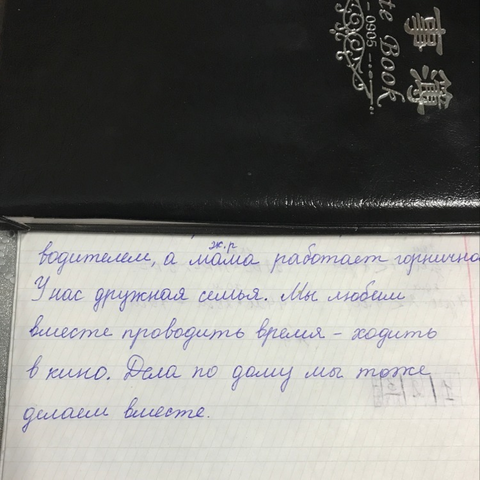 事簿
te Book
— 0905 —
ж.р
водителем, а мама работает горнична
У нас дружная семья. Мы любим
вместе проводить время – ходить
в кино. Дела по дому мы тоже
делаем вместе.